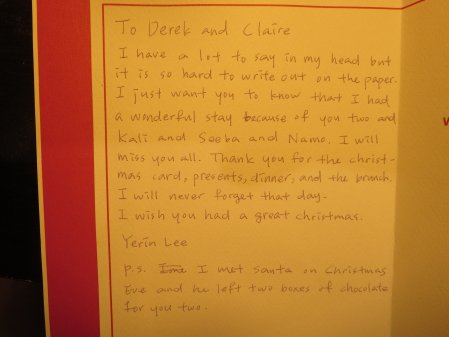 To Derek and Claire
I have a lot to say in my head but
it is so hard to write out on the paper.
I just want you to know that I had
a wonderful stay because of you two and
Kali and Seeba and Namo. I will
miss you all. Thank you for the christ-
mas card, presents, dinner, and the brunch.
I will never forget that day.
I wish you had a great christmas.
Yerin Lee
p.s. I met santa on Christmas
Eve and he left two boxes of chocolate
for you two.